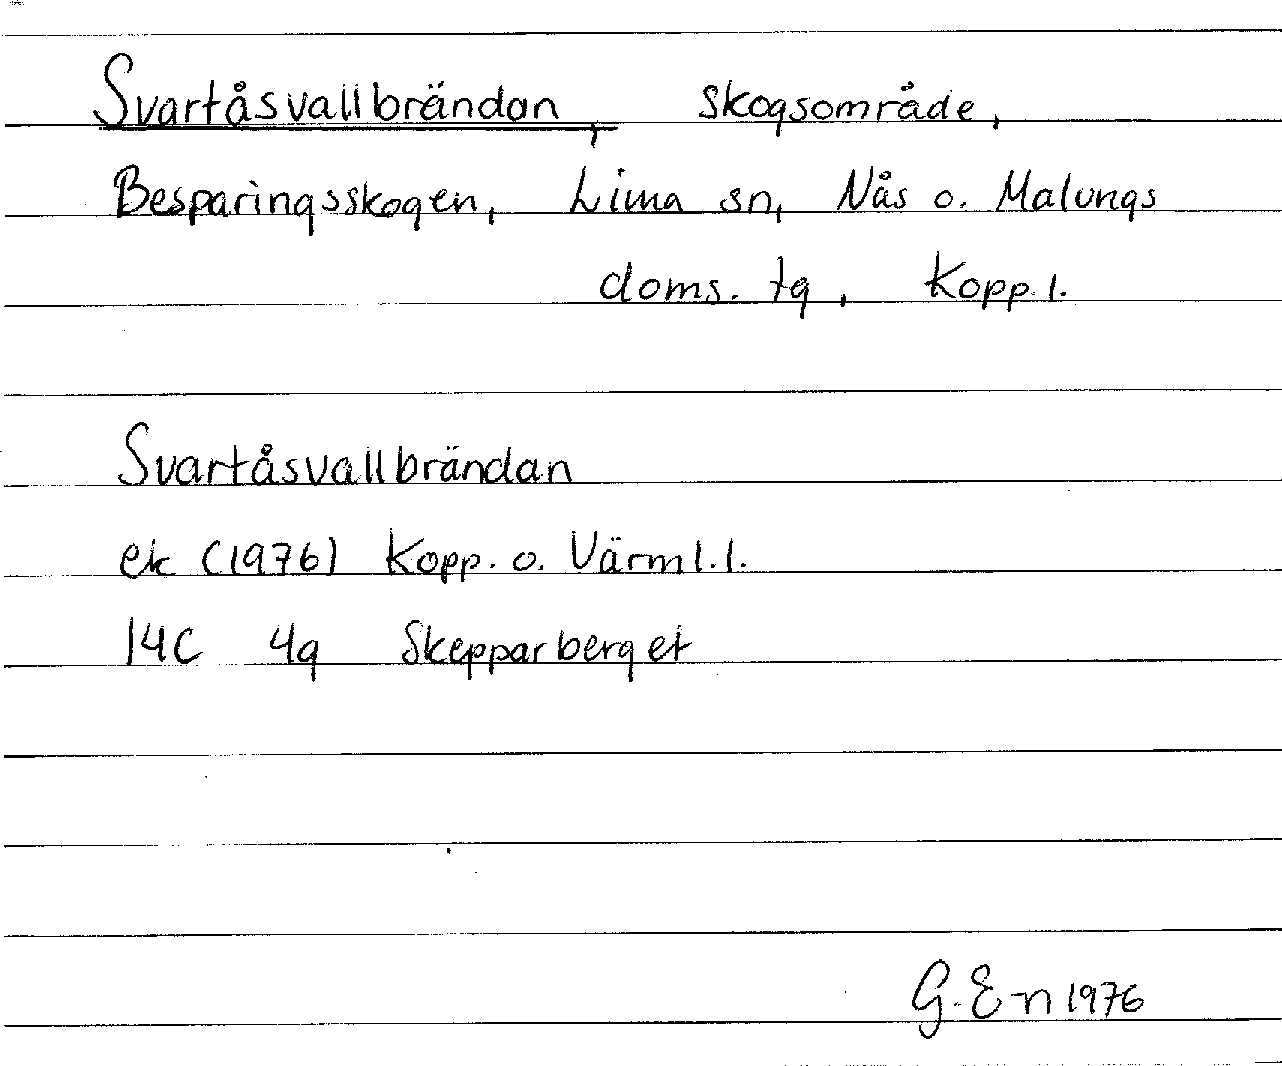 Svartåsvallbrändan, skogsområde,
Besparingsskogen, Lima sn, Nås o. Malungs
doms. tg, Kopp. l.
Svartåsvallbrändan
ek (1976) Kopp. o. Värml. l.
14C 4g Skepparberget
G. E-n 1976